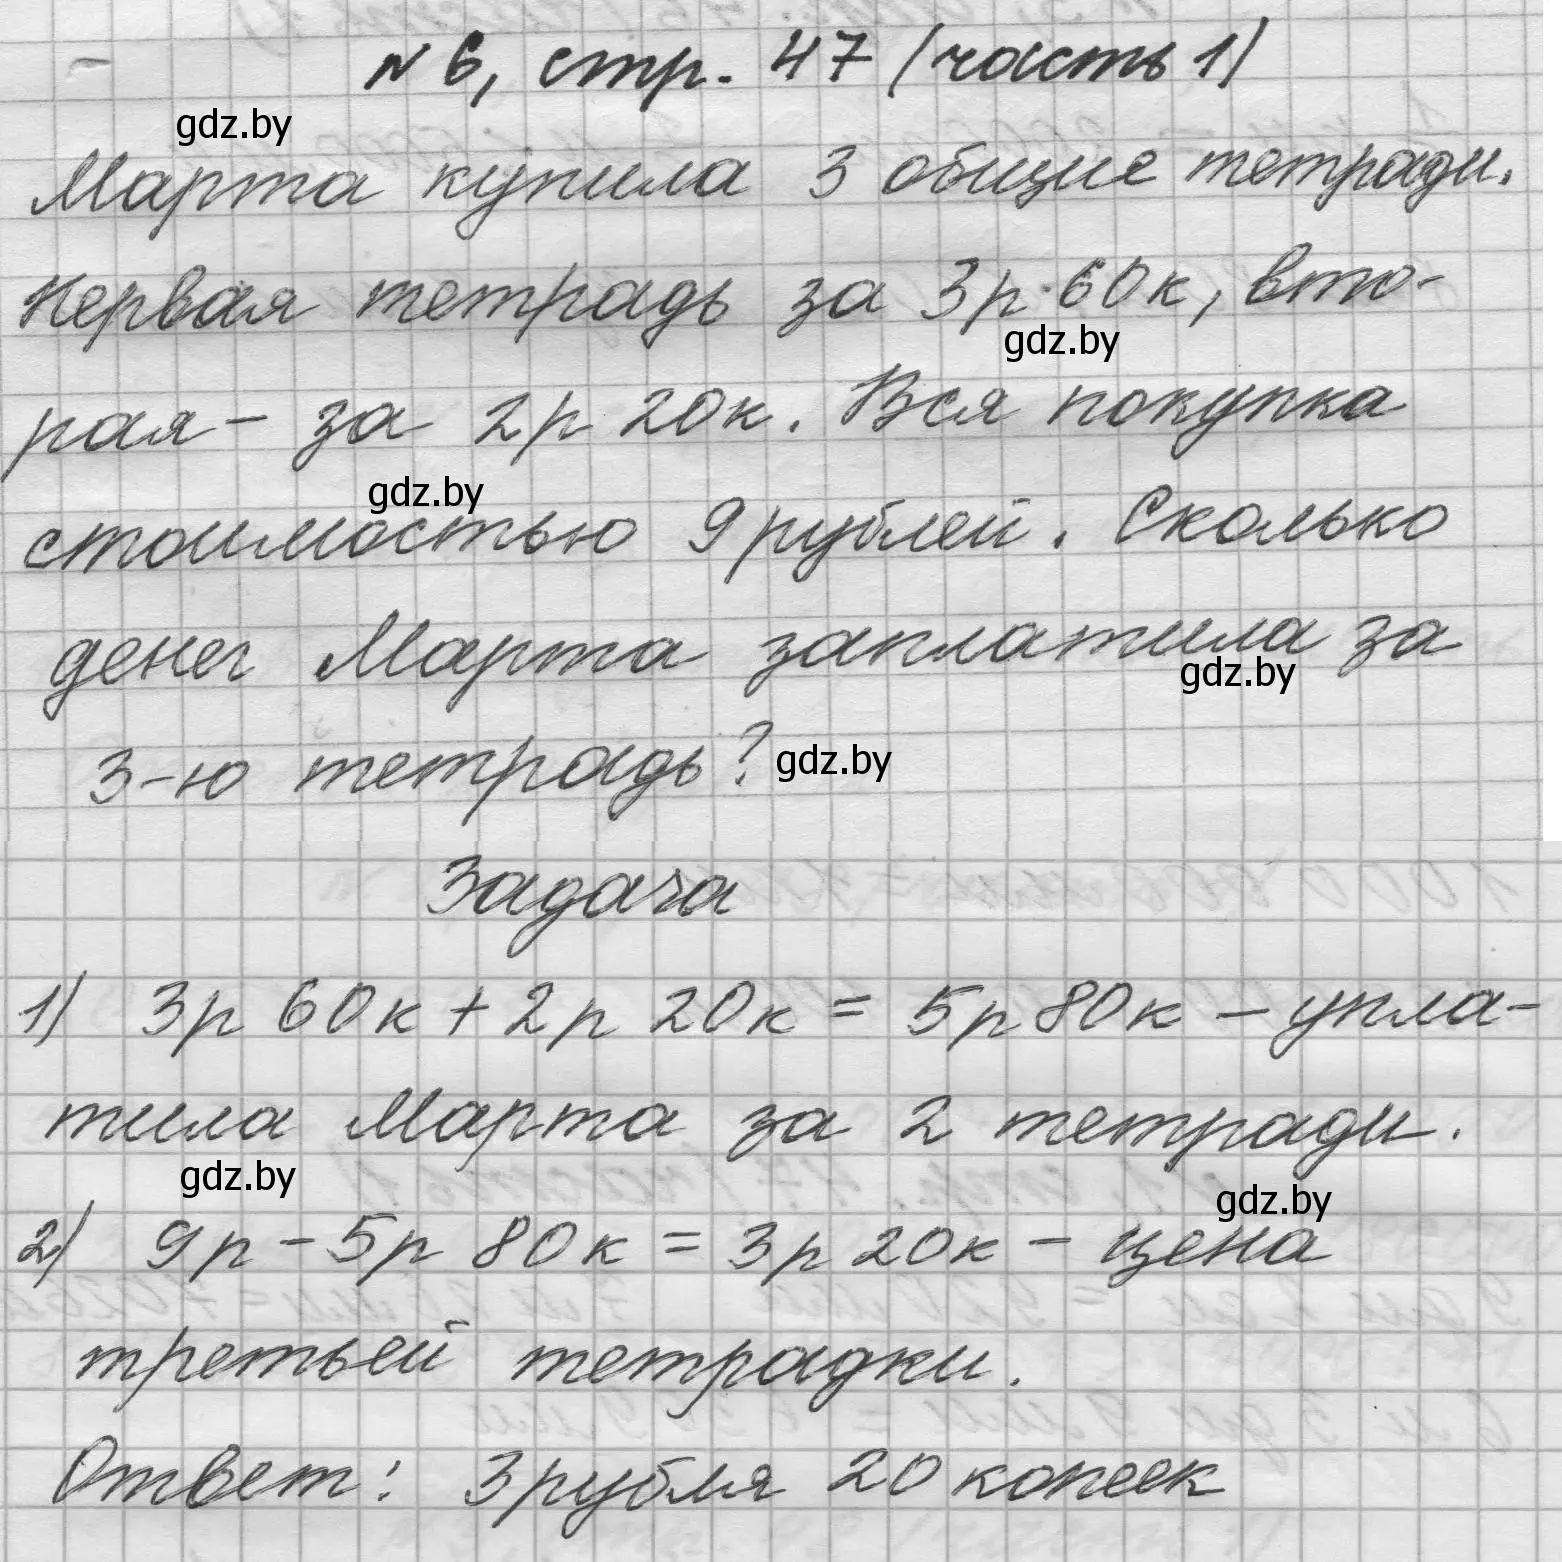 № 6, стр. 47 (часть 1)
gdz.by
Марта купила 3 общие тетради.
Первая тетрадь за 3р 60к, вто-
gdz.by
рая - за 2р 20к. Вся покупка
gdz.by
стоимостью 9 рублей. Сколько
денег Марта заплатила за
gdz.by
3-ю тетрадь?
gdz.by
Задача
1) 3р 60к + 2р 20к = 5р 80к - упла-
тила Марта за 2 тетради.
gdz.by
gdz.by
2) 9р - 5р 80к = 3р 20к - цена
третьей тетрадки.
Ответ: 3 рубля 20 копеек